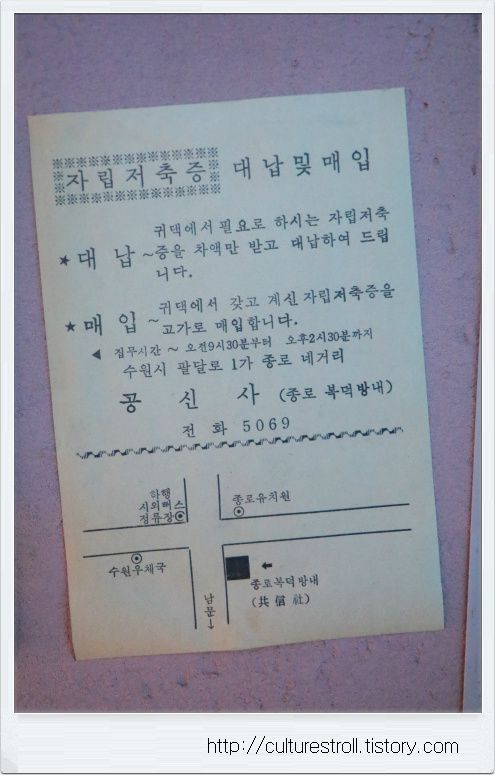 자립저축증 대납및매입
★ 대납 ~ 귀댁에서 필요로 하시는 자립저축
증을 차액만 받고 대납하여 드립
니다.
★ 매입 ~ 귀댁에서 갖고 계신 자립저축증을
고가로 매입합니다.
◀ 집무시간 ~ 오전9시30분부터 오후2시30분까지
수원시 팔달로 1가 종로 네거리
공신사 (종로 복덕방내)
전화 5069
하행
시외뻐스
정류장
종로유치원
수원우체국
남문
↓
←
종로복덕방내
(共信社)
http://culturestroll.tistory.com